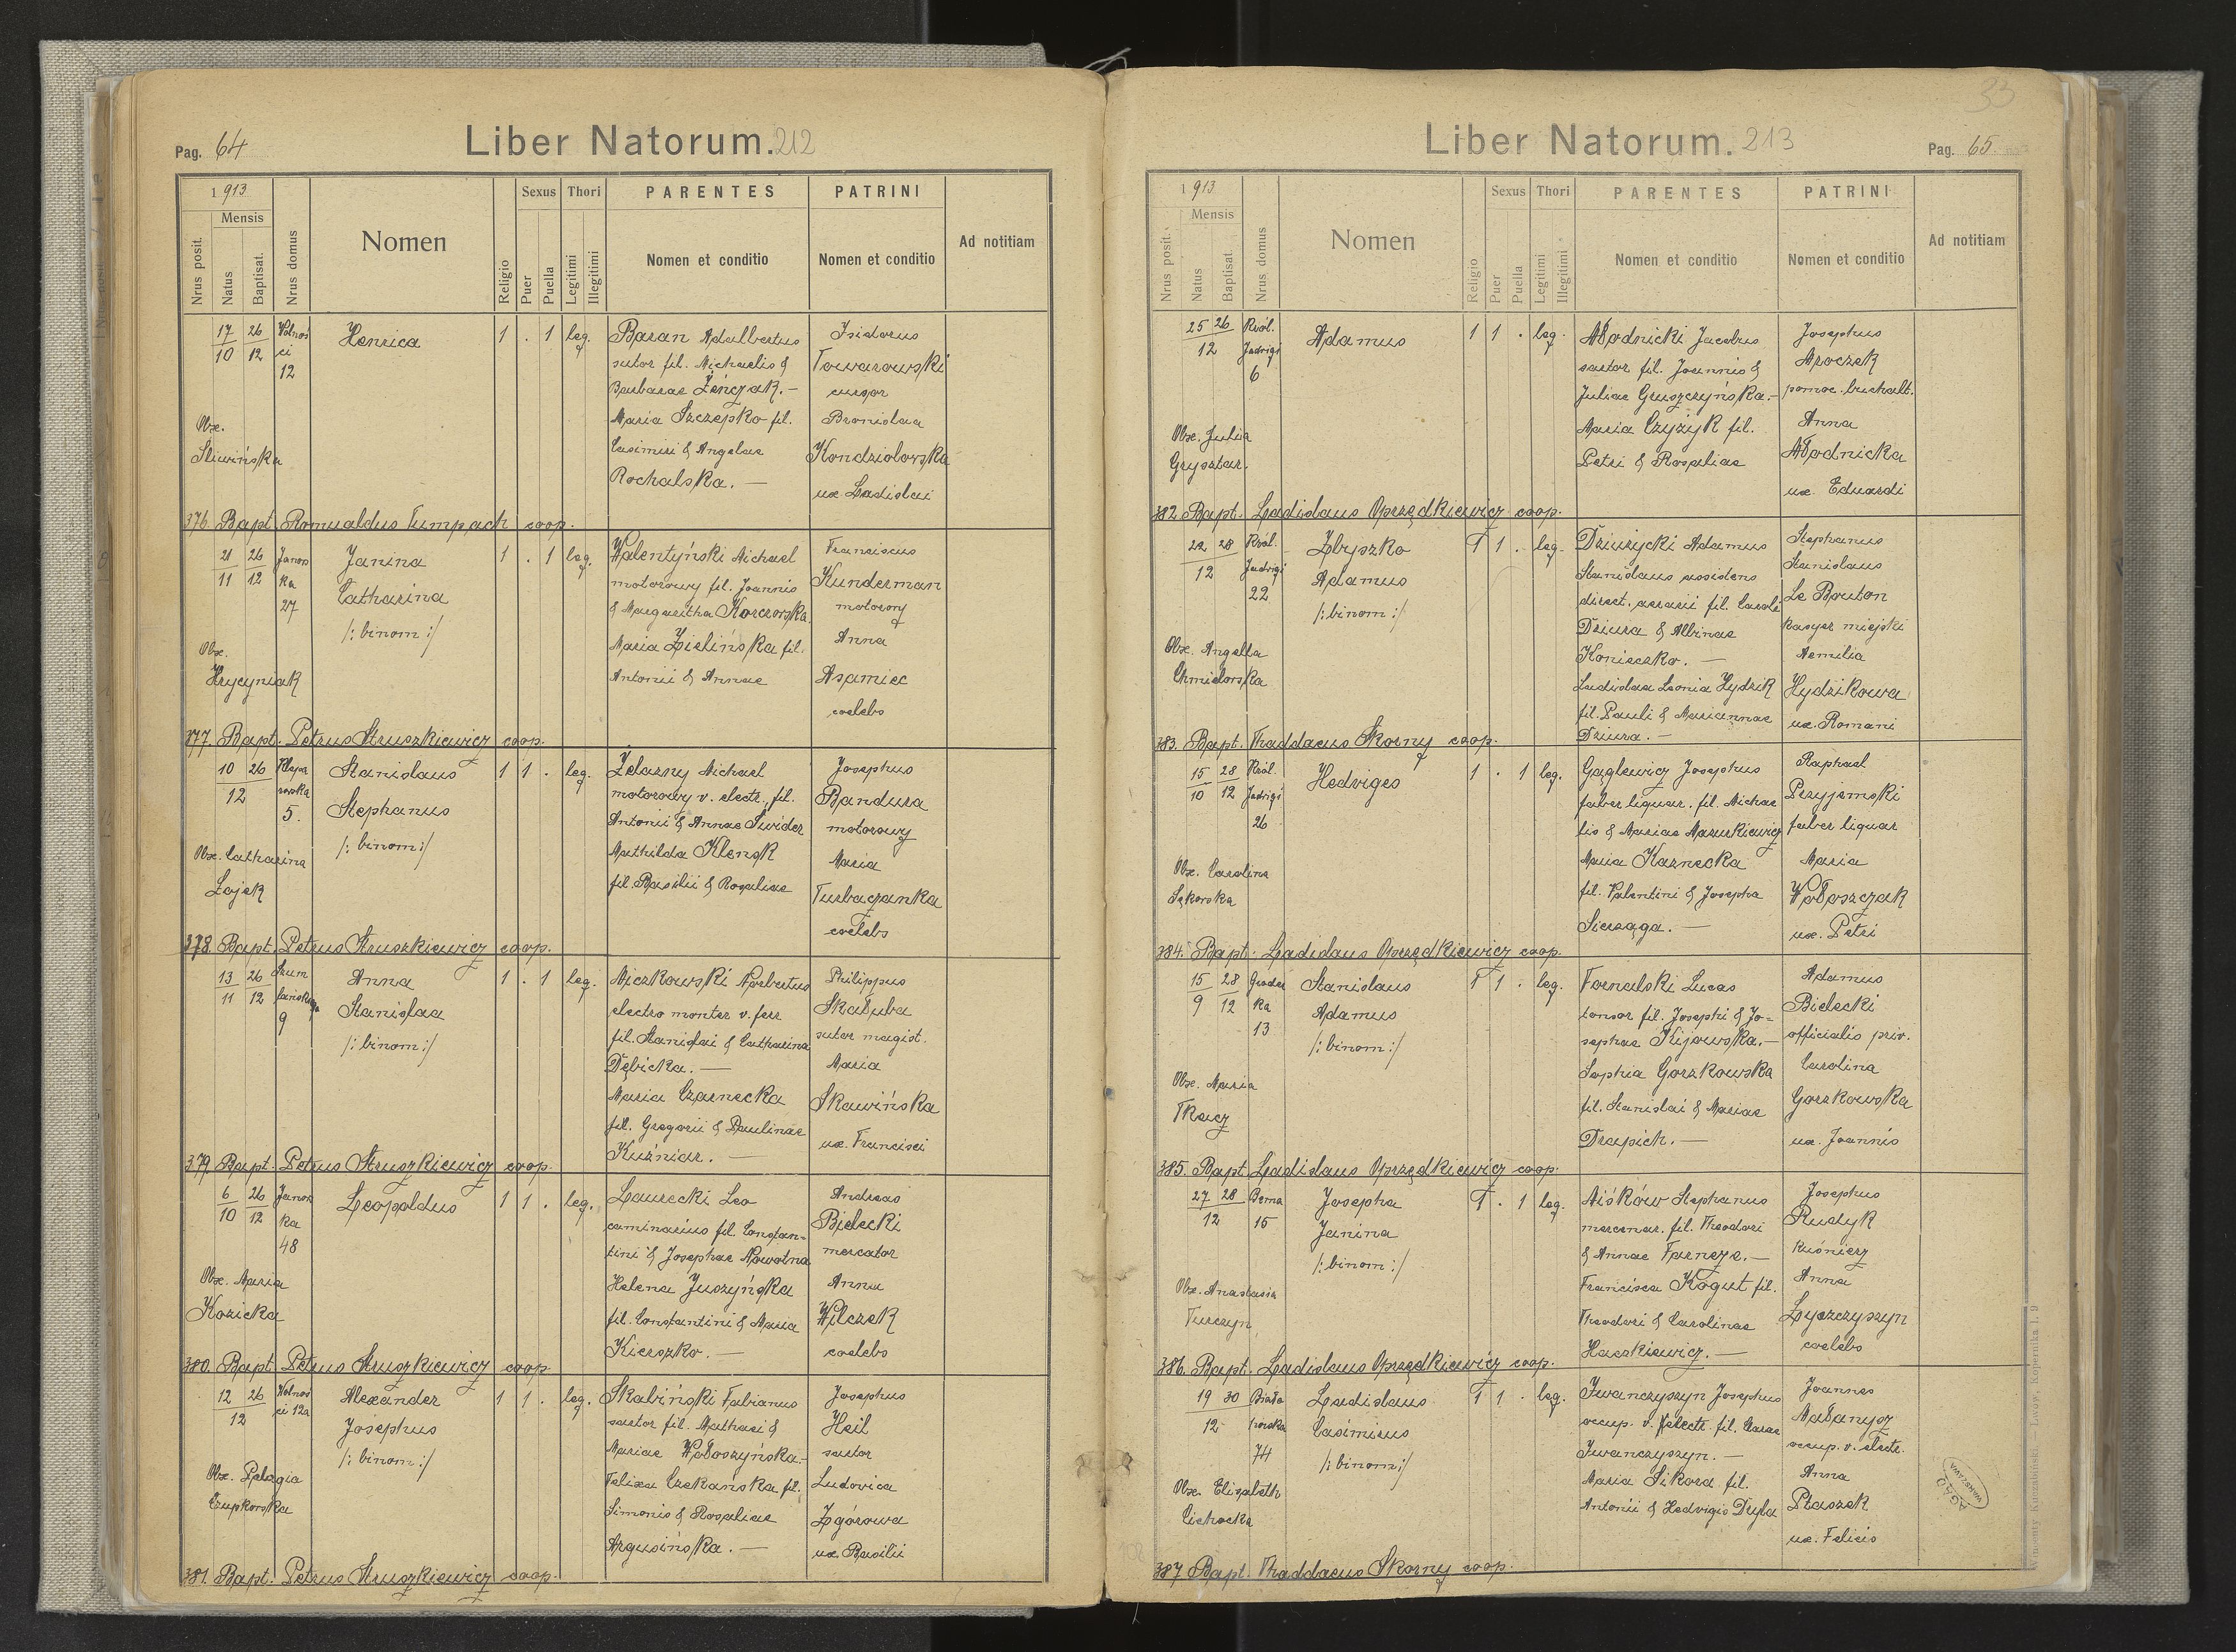 Pag. 64
Liber Natorum. 212
1913
Mensis
Nrus posit.
Natus
Baptisat.
Nrus domus
Nomen
Religio
Sexus
Puer
Puella
Thori
Legitimi
Illegitimi
PARENTES
Nomen et conditio
PATRINI
Nomen et conditio
Ad notitiam
17/10 26/12 Wolnoś
ci
12
Henrica
1 . 1 leg.
Baran Adalbertus
sutor fil. Michaelis &
Barbarae Żeńczak.-
Maria Szczepko fil.
Casimiri & Angelae
Rochalska. —
Isidorus
Towarowski
cursor
Bronislaa
Kondziolowska
ux. Ladislai
Obx.
Śliwińska
376. Bapt. Romualdus Tumpach coop.
21/11 26/12 Janow
ka
27
Janina
Catharina
/: binom :/
1 . 1 leg.
Walentyński Michael
motorowy fil. Joannis
& Margaritha Korczowska.
Maria Zielińska fil.
Antonii & Annae
Franciscus
Kunderman
motorowy
Anna
Asamiec
coelebs
Obx.
Hrycyniak
377. Bapt. Petrus Struszkiewicz coop.
10 26/12 Klepa
rowska
5.
Stanislaus
Stephanus
/: binom :/
1 1 . leg.
Żelazny Michael
motorowy v. electr., fil.
Antonii & Annae Świder
Mathilda Klensk
fil. Basilii & Rosaliae
Josephus
Bandura
motorowy
Maria
Turbaczanka
coelebs
Obx. Catharina
Zajek
378. Bapt. Petrus Struszkiewicz coop.
13/11 26/12 Szum
lańskiego
9
Anna
Stanislaa
/: binom :/
1 . 1 leg.
Miczkowski Norbertus
electro monter v. ferr
fil. Stanislai & Catharina
Dębicka. —
Maria Czarnecka
fil. Gregorii & Paulinae
Kuźniar. —
Philippus
Skałuba
sutor magist.
Maria
Skawińska
ux. Francisci
379. Bapt. Petrus Struszkiewicz coop.
6/10 26/12 Janow
ka
48
Leopoldus
1 1 . leg.
Laurecki Leo
caminarius fil. Constan=
tini & Josephae Nowotna
Helena Juszyńska
fil. Constantini & Maria
Kierszko. —
Andreas
Bielecki
mercator
Anna
Wilczek
coelebs
Obx. Maria
Kozicka
380. Bapt. Petrus Struszkiewicz coop.
12 26/12 Wolnoś
ci 12a
Alexander
Josephus
/: binom :/
1 1 . leg.
Skabiński Fabianus
sartor fil. Mathaei &
Mariae Wołoszyńska.-
Felixa Czekańska fil.
Simonis & Rosaliae
Argusińska. —
Josephus
Heil
sartor
Ludovica
Zgórowa
ux. Basilii
Obx. Pelagia
Czupkowska
381. Bapt. Petrus Struszkiewicz coop.
33
Liber Natorum. 213
Pag. 65.
1913
Mensis
Nrus posit.
Natus
Baptisat.
Nrus domus
Nomen
Religio
Sexus
Puer
Puella
Thori
Legitimi
Illegitimi
PARENTES
Nomen et conditio
PATRINI
Nomen et conditio
Ad notitiam
25 26/12 Król.
Jadwigi
6
Adamus
1 1 . leg.
Młodnicki Jacobus
sartor fil. Joannis &
Juliae Gruszczyńska.-
Maria Czyżyk fil.
Petri & Rosaliae
Josephus
Mroczek
pomoc. buchalt.
Anna
Młodnicka
ux. Eduardi
Obx. Julia
Grysztar.
382. Bapt. Ladislaus Oprzędkiewicz coop.
22 28/12 Król.
Jadwigi
22
Zbyszko
Adamus
/: binom :/
1 1 . leg.
Dziurzycki Adamus
Stanislaus assidens
direct. aerarii fil. Caroli
Dziura & Albinae
Konieczko. —
Ladislaa Leonia Hydzik
fil. Pauli & Mariannae
Dziura. —
Stephanus
Stanislaus
Le Bouton
kasyer miejski
Aemilia
Hydzikowa
ux. Romani
Obx. Angella
Chmielowska
383. Bapt. Thaddaeus Skorny coop.
15/10 28/12 Król.
Jadwigi
26
Hedviges
1 . 1 leg.
Gąglewicz Josephus
faber lignar. fil. Michae
lis & Mariae Mazurkiewicz
Maria Kaznecka
fil. Valentini & Josepha
Sierzęga. —
Raphael
Przyjemski
faber lignar
Maria
Wołoszczak
ux. Petri
Obx. Carolina
Sękowska
384. Bapt. Ladislaus Oprzędkiewicz coop.
15/9 28/12 Grodec
ka
13
Stanislaus
Adamus
/: binom :/
1 1 . leg.
Fornalski Lucas
tonsor fil. Josephi & Jo=
sephae Kijowska.—
Sophia Gorzkowska
fil. Stanislai & Mariae
Drapich. —
Adamus
Bielecki
officialis priv.
Carolina
Gorzkowska
ux. Joannis
Obx. Maria
Tkacz
385. Bapt. Ladislaus Oprzędkiewicz coop.
27 28/12 Bema
15
Josepha
Janina
/: binom :/
1 . 1 leg.
Miśków Stephanus
mercenar. fil. Theodori
& Annae Farnega. —
Francisca Kogut fil.
Theodori & Carolinae
Haszkiewicz. —
Josephus
Rudyk
kuśnierz
Anna
Łyszczyszyn
coelebs
Obx. Anastasia
Turczyn
386. Bapt. Ladislaus Oprzędkiewicz coop.
19 30/12 Biało
howska
74
Ladislaus
Casimirus
/: binom :/
1 1 . leg.
Iwanczyszyn Josephus
occup. v. electr. fil. Barae
Iwanczyszyn. —
Maria Sikora fil.
Antonii & Hedvigis Dryla
Joannes
Małanycz
occup. v. electr.
Anna
Ptaszek
ux. Felicis
Obx. Elizabeth
Cichocka
387. Bapt. Thaddaeus Skorny coop.
AGAD
WARSZAWA